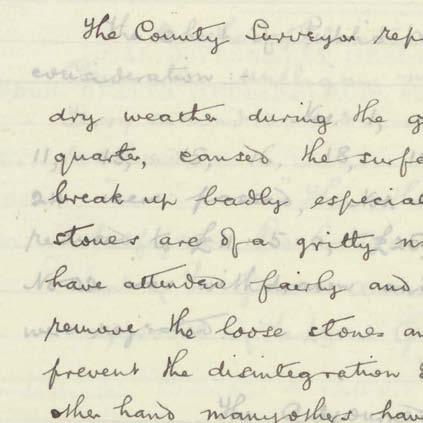 The County Surveyor rep
consideration :-
dry weather during the g
quarter, caused the surfa
break up badly especial
stones are of a gritty n
have attended fairly and
remove the loose stones an
prevent the disintegration
other hand many others hav